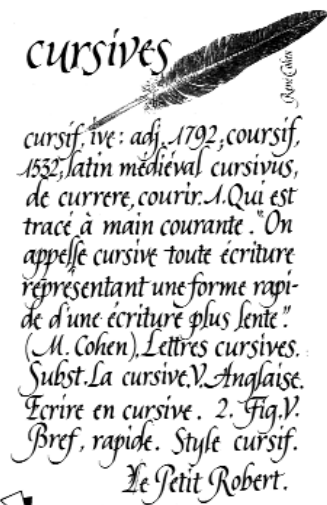 cursives
René Cohen
cursif, ive : adj. 1792, coursif,
1532, latin médiéval cursivus,
de currere, courir. 1. Qui est
tracé à main courante. "On
appelle cursive toute écriture
représentant une forme rapi-
de d'une écriture plus lente".
(M. Cohen), Lettres cursives.
Subst. La cursive. V. Anglaise.
Ecrire en cursive. 2. Fig. V.
Bref, rapide. Style cursif.
Le Petit Robert.